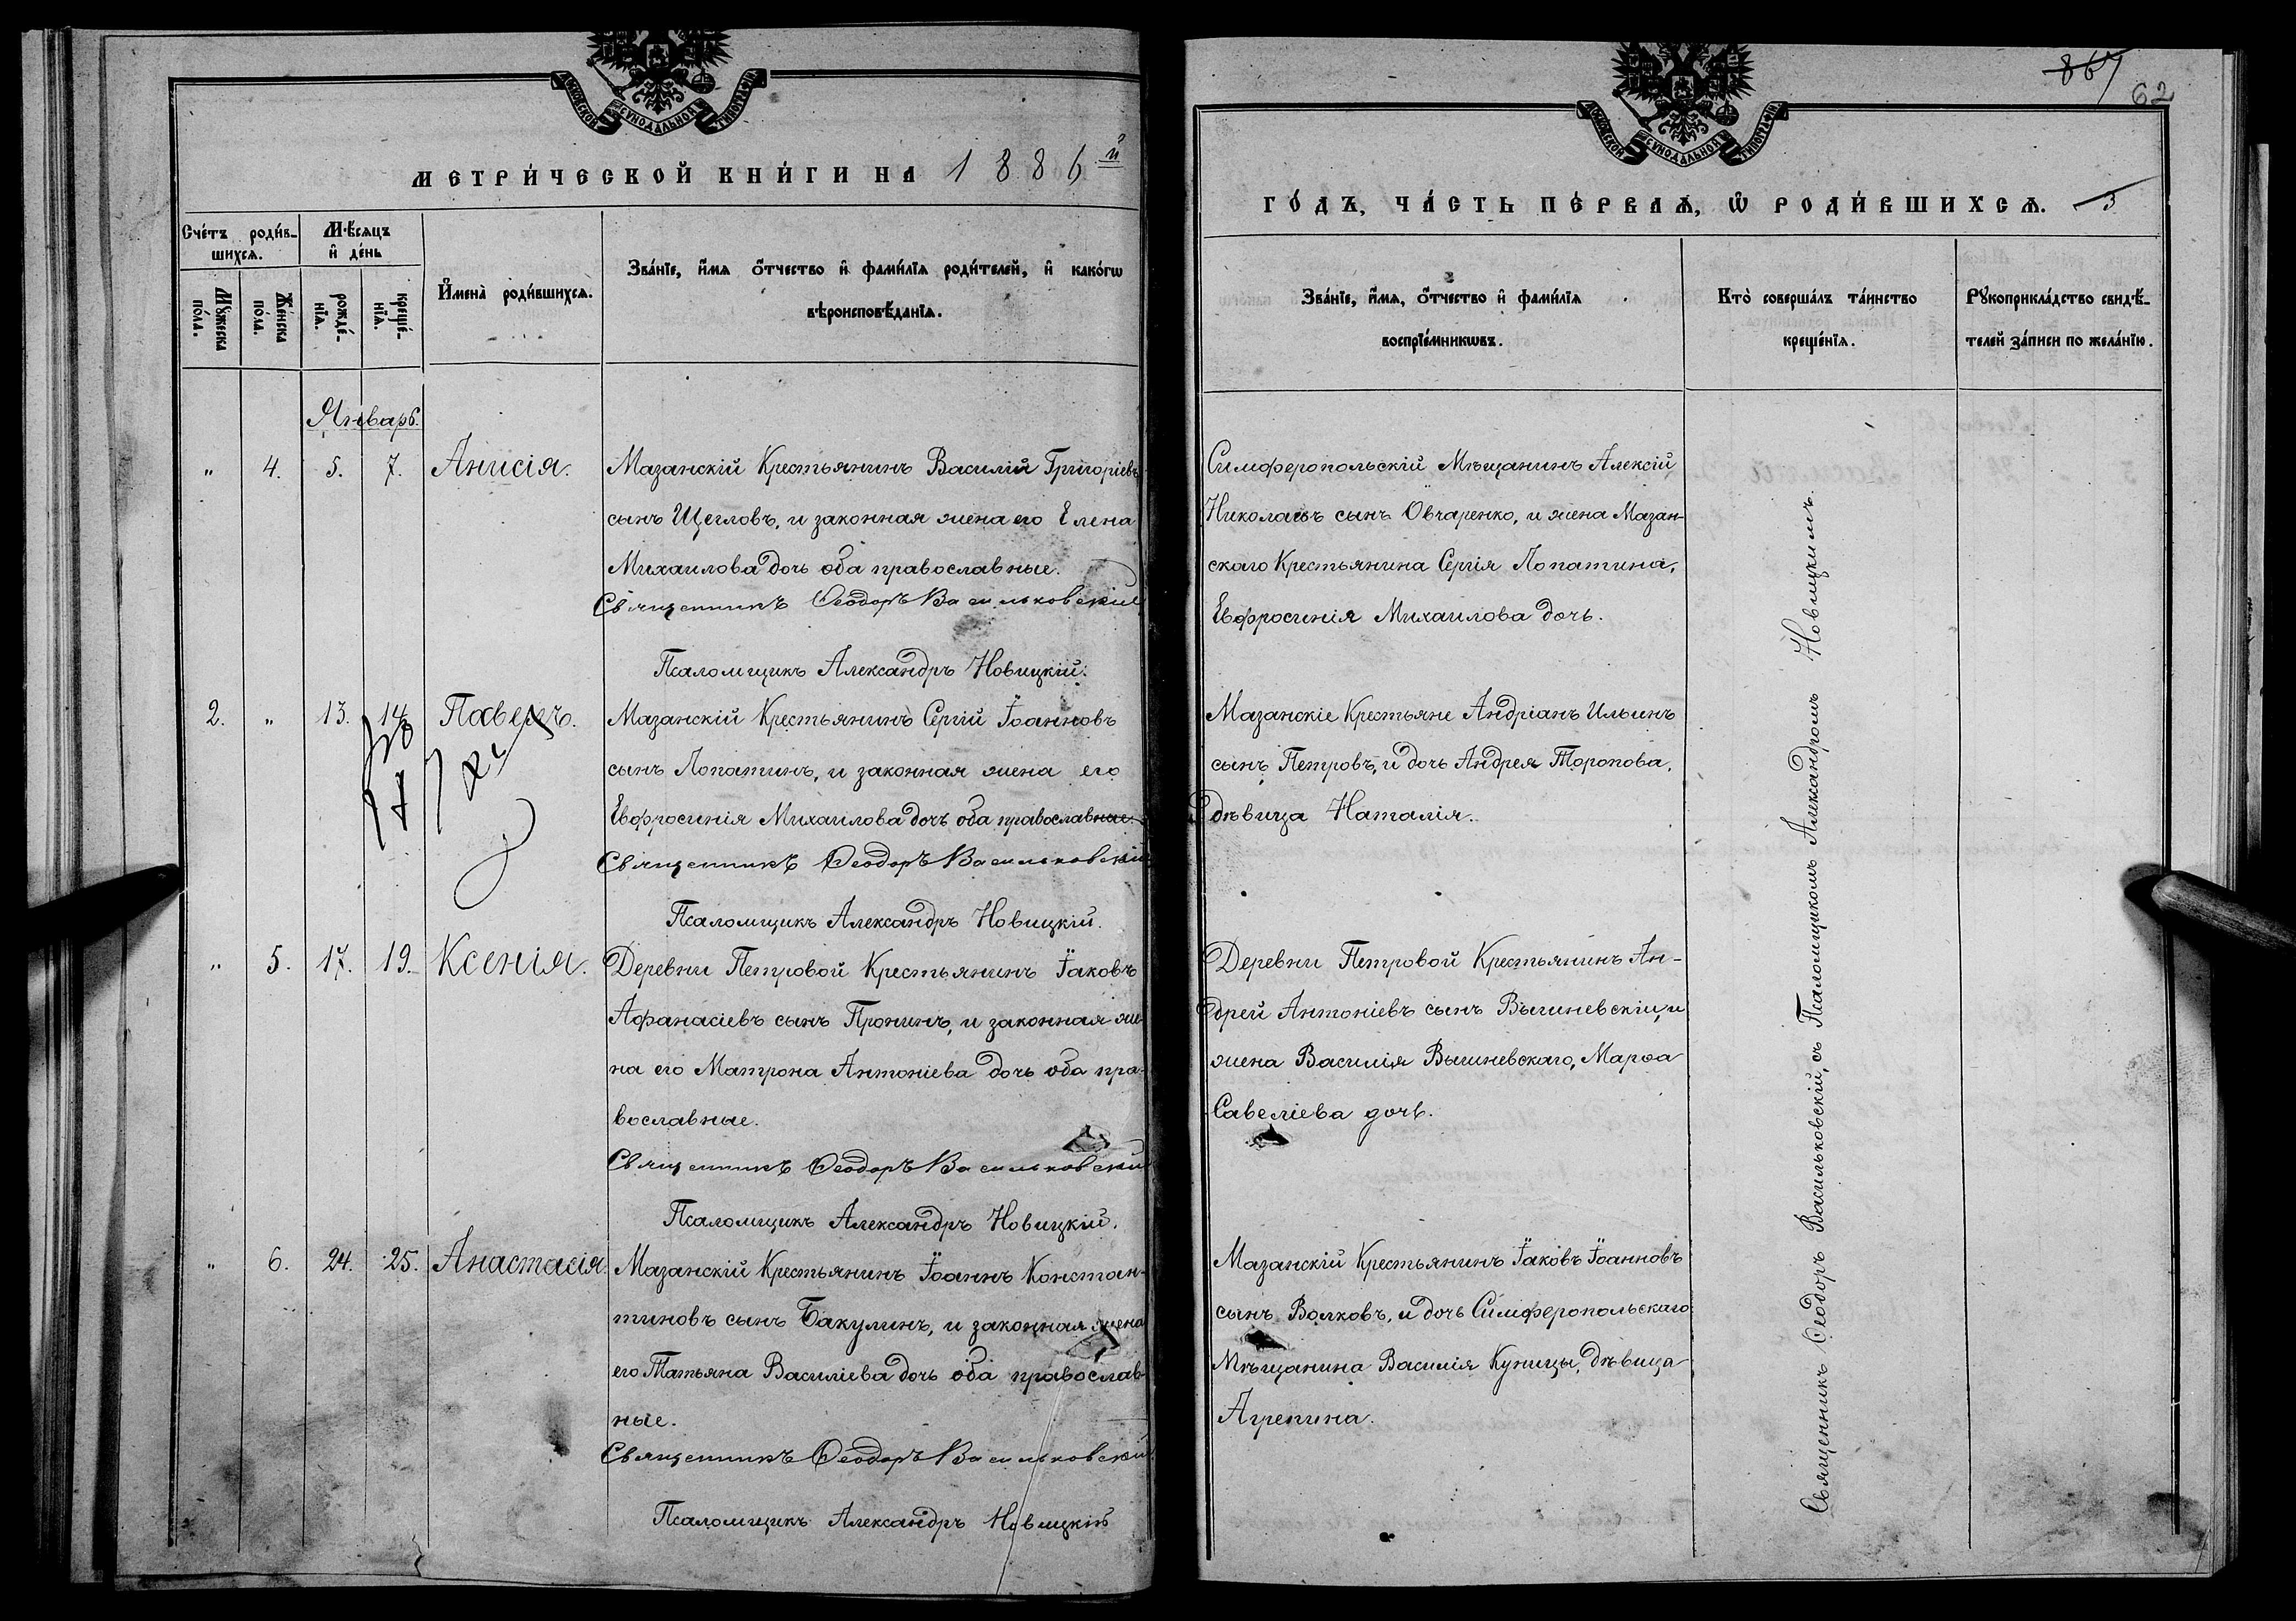 МОСКОВСКОЙ СѴНОДАЛЬНОЙ ТИПОГРАФІИ
МЕТРИ́ЧЕСКОЙ КНИ́ГИ НА 1886й
Сче́тъ роди́в-
шихсѧ.
Мѣ́сяцъ
и҆ де́нь
Мꙋжеска
по́ла.
Же́нска
по́ла.
рожде́-
нїѧ.
креще́-
нїѧ.
И҆мена̀ роди́вшихсѧ.
Зва́нїе, и҆́мѧ ѻ҆́тчество и҆ фами́лїѧ роди́телей, и҆ како́гѡ
вѣроисповѣ́данїѧ.
Январь.
„ 4. 5. 7. Анисія.
Мазанскій Крестьянинъ Василій Григоріевъ
сынъ Щегловъ, и законная жена его Елена
Михаилова дочь оба православные.
Священникъ Ѳеодоръ Васильковскій
Псаломщикъ Александръ Новицкій.
2. „ 13. 14 Павелъ.
Мазанскій Крестьянинъ Сергій Іоанновъ
сынъ Лопатинъ, и законная жена его
Евфросинія Михаилова дочь оба православные.
Священникъ Ѳеодоръ Васильковскій
Псаломщикъ Александръ Новицкій.
„ 5. 17. 19. Ксенія.
Деревни Петровой Крестьянинъ Іаковъ
Афанасіевъ сынъ Пронинъ, и законная же-
на его Матрона Антоніева дочь оба пра-
вославные.
Священникъ Ѳеодоръ Васильковскій
Псаломщикъ Александръ Новицкій.
„ 6. 24. 25. Анастасія.
Мазанскій Крестьянинъ Іоаннъ Констан-
тиновъ сынъ Бакулинъ, и законная жена
его Татьяна Василіева дочь оба православ-
ные.
Священникъ Ѳеодоръ Васильковскій
Псаломщикъ Александръ Новицкій
867
62
МОСКОВСКОЙ СѴНОДАЛЬНОЙ ТИПОГРАФІИ
ГО́ДЪ, ЧА́СТЬ ПЕ́РВАѦ, Ѡ҆ РОДИ́ВШИХСѦ. 3
Зва́нїе, и҆́мѧ, ѻ҆́тчество и҆ фами́лїѧ
воспрїе́мникѡвъ.
Кто̀ соверша́лъ та́инство
креще́нїѧ.
Рꙋкоприкла́дство свидѣ́-
телей за́писи по жела́нїю.
Симферопольскій Мѣщанинъ Алексій
Николаевъ сынъ Овчаренко, и жена Мазан-
скаго Крестьянина Сергія Лопатина,
Евфросинія Михаилова дочь.
Мазанскіе Крестьяне Андріанъ Ильинъ
сынъ Петровъ, и дочь Андрея Торопова,
дѣвица Наталія.
Деревни Петровой Крестьянинъ Ан-
дрей Антоніевъ сынъ Вышневскій, и
жена Василія Вышневскаго, Марѳа
Савеліева дочь.
Мазанскій Крестьянинъ Іаковъ Іоанновъ
сынъ Волковъ, и дочь Симферопольскаго
Мѣщанина Василія Куницы, дѣвица
Агрепина.
Священникъ Ѳеодоръ Васильковскій, съ Псаломщикомъ Александромъ Новицкимъ.